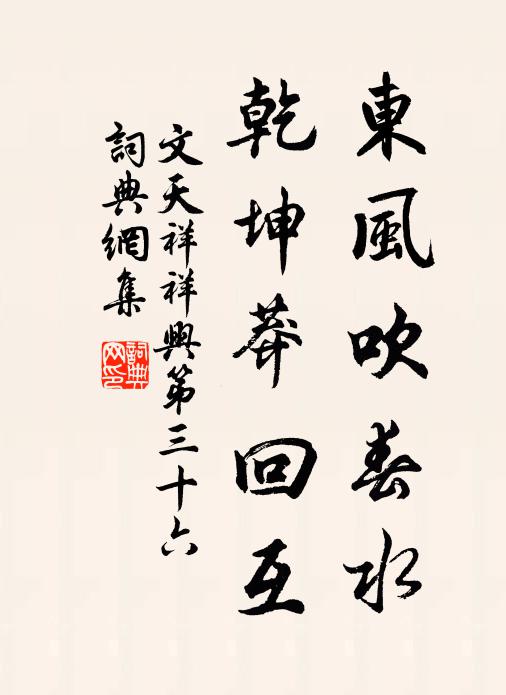 東風吹春水
乾坤莽回互
文天祥祥興第三十六
詞典網集
詞典網印